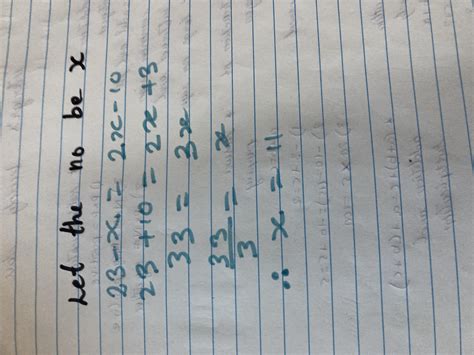 Let the no be x
23 - x = 2x - 10
23 + 10 = 2x + 3
33 = 3x
33/3 = x
∴ x = 11